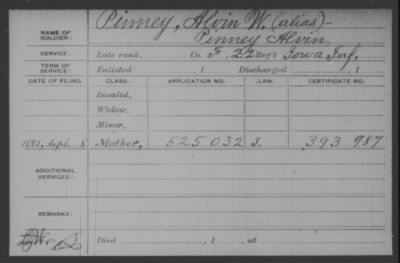 Pinney, Alvin W. (alias)–
NAME OF SOLDIER: Pinney Alvin
SERVICE: Late rank, Co. F, 22 Reg't Iowa Inf.
TERM OF SERVICE: Enlisted , 1 Discharged , 1
DATE OF FILING. CLASS. APPLICATION NO. LAW. CERTIFICATE NO.
Invalid,
Widow,
Minor,
1891, Sept. 5 Mother, 525 032 393 987
ADDITIONAL SERVICES:
REMARKS:
Died , 1 , at